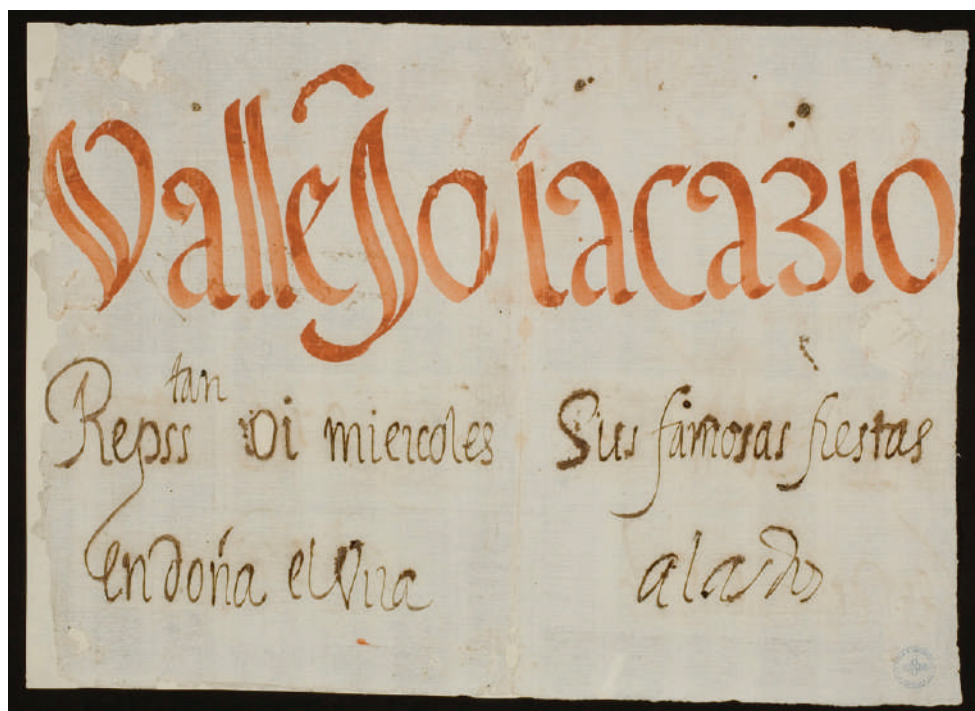 Vallejo iacazio
Repss^tan Oi miercoles Sus famosas fiestas
en doña elvira a las dos